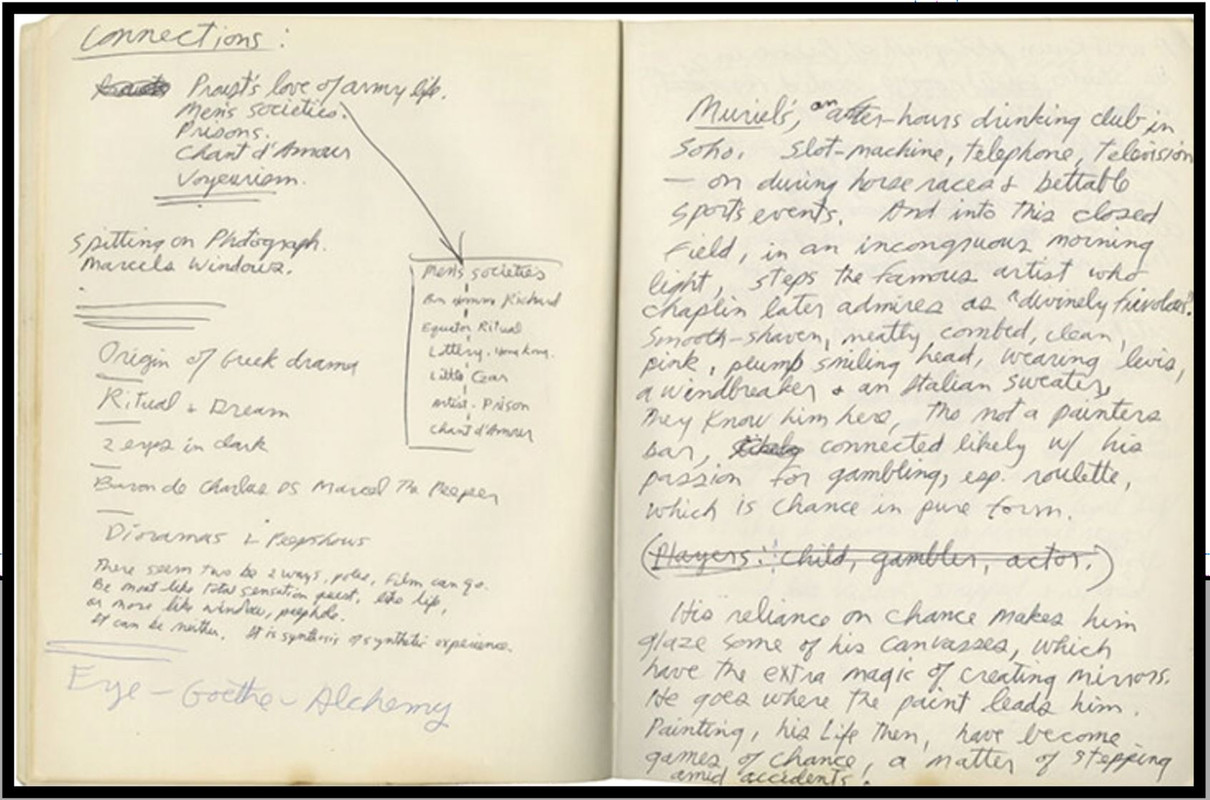 Connections:
Proust's love of army life.
Men's societies.
Prisons.
Chant d'Amour
Voyeurism.
Spitting on Photograph.
Marcels Windows.
Men's societies
Richard
Equator Ritual
Lottery. Hong Kong.
Little Czar
Artist. Prison
Chant d'Amour
Origin of Greek drama
Ritual & Dream
2 eyes in dark
Baron de Charlus Marcel The Peeper
Dioramas & Peepshows
There seem two be 2 ways, poles, Film can go.
Be most like total sensation, like life,
or more like window, peephole.
It can be neither. It is synthesis of synthetic experience.
Eye - Goethe - Alchemy
Muriel's, an after-hours drinking club in
Soho. Slot-machine, telephone, television
— on during horseraces & bettable
sports events. And into this closed
Field, in an incongruous morning
light, steps the famous artist who
chaplin later admires as "divinely frivolous".
Smooth-shaven, neatly combed, clean,
pink, plump smiling head, wearing levis,
a windbreaker & an Italian sweater,
They know him here, tho not a painters
bar, connected likely w/ his
passion for gambling, esp. roulette,
which is chance in pure form.
(Players: child, gambler, actor.)
His reliance on chance makes him
glaze some of his canvasses, which
have the extra magic of creating mirrors.
He goes where the paint leads him.
Painting, his Life Then, have become
games of chance, a matter of stepping
amid accidents.